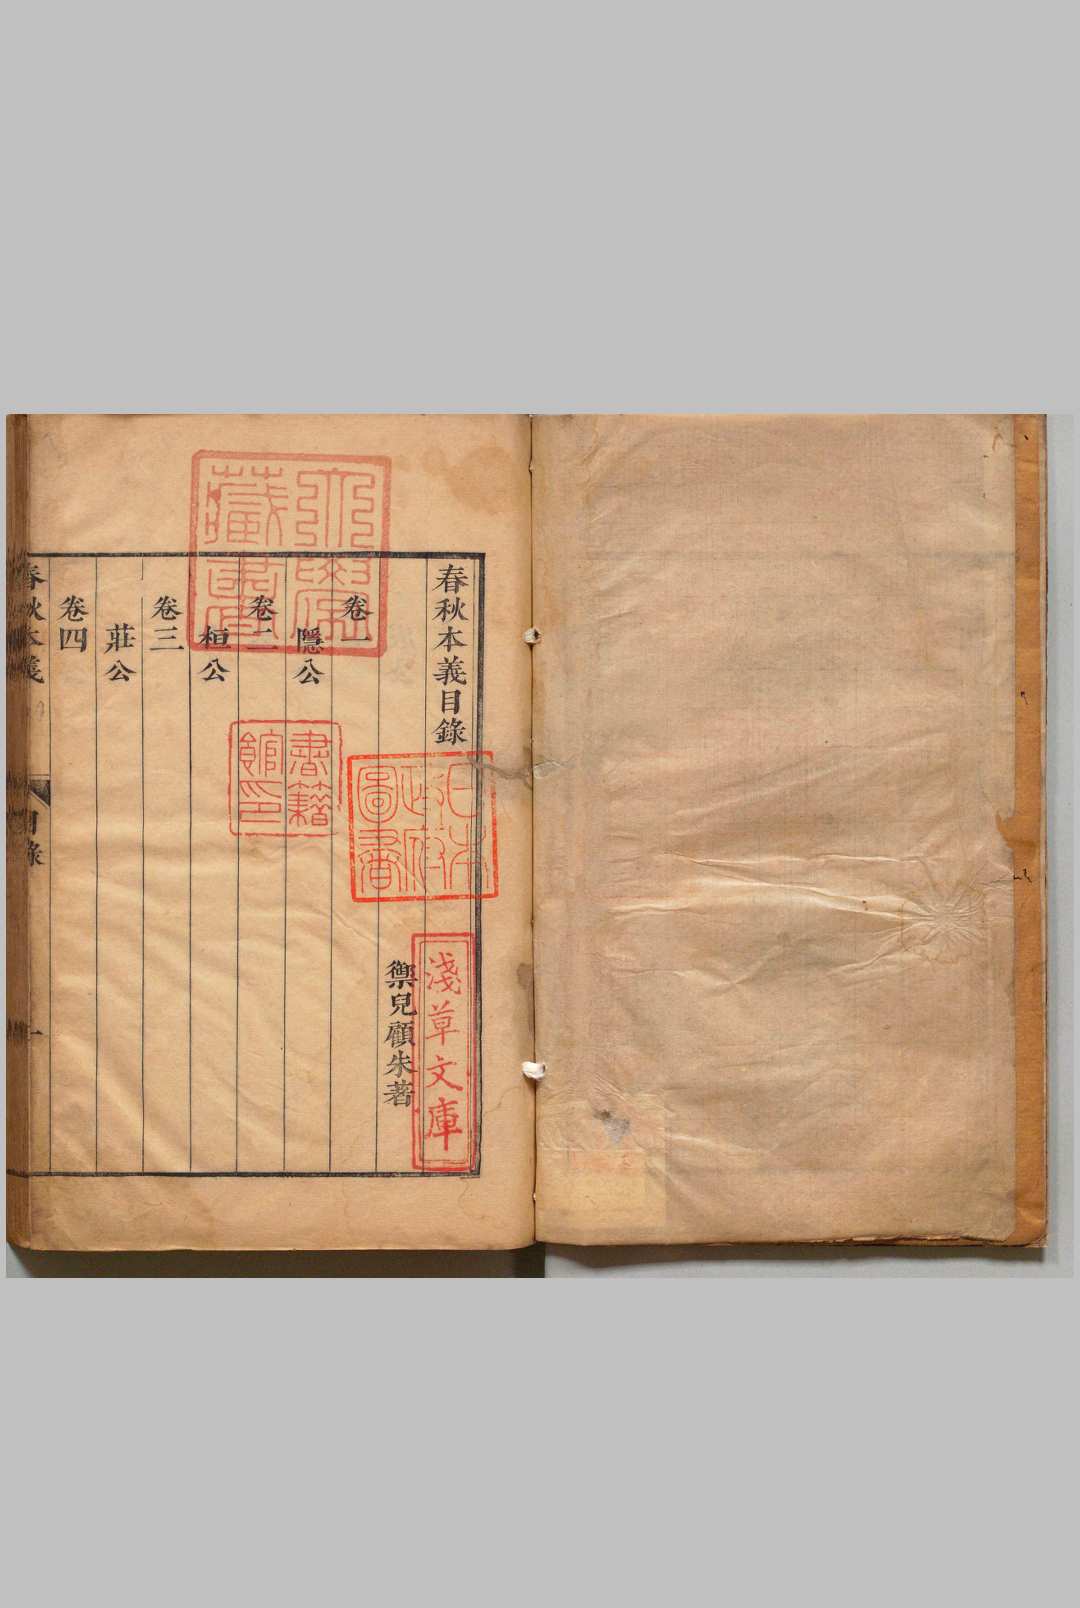 春秋本義目錄
禦兒顧朱著
卷一
隱公
卷二
桓公
卷三
莊公
卷四
春秋本義
目錄
一
書籍館印
日本政府圖書
淺草文庫